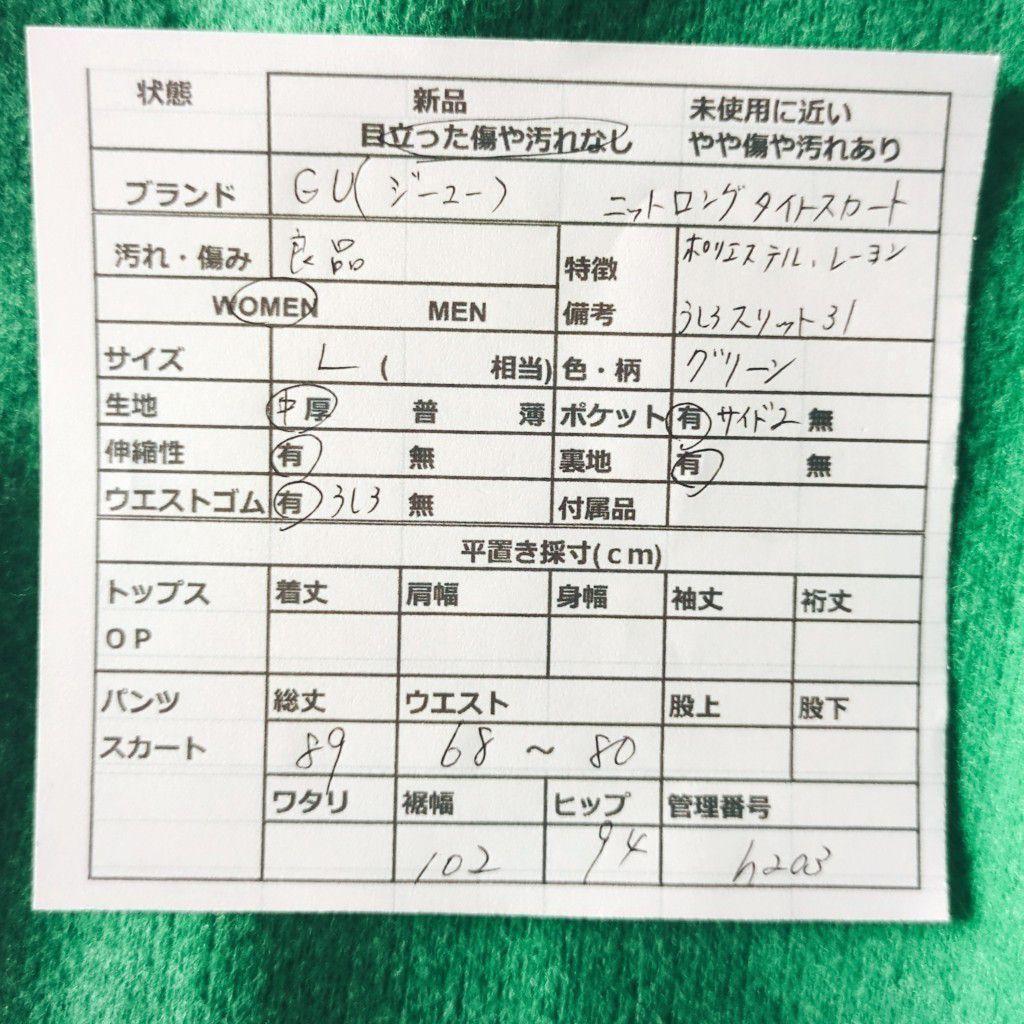 状態 新品 未使用に近い
目立った傷や汚れなし やや傷や汚れあり
ブランド GU(ジーユー) ニットロングタイトスカート
汚れ・傷み 良品 特徴 ポリエステル、レーヨン
WOMEN MEN 備考 うしろスリット31
サイズ L ( 相当) 色・柄 グリーン
生地 中厚 普 薄 ポケット 有 サイド2 無
伸縮性 有 無 裏地 有 無
ウエストゴム 有 うしろ 無 付属品
平置き採寸(cm)
トップス 着丈 肩幅 身幅 袖丈 裄丈
OP
パンツ 総丈 ウエスト 股上 股下
スカート 89 68 ~ 80
ワタリ 裾幅 ヒップ 管理番号
102 94 h203